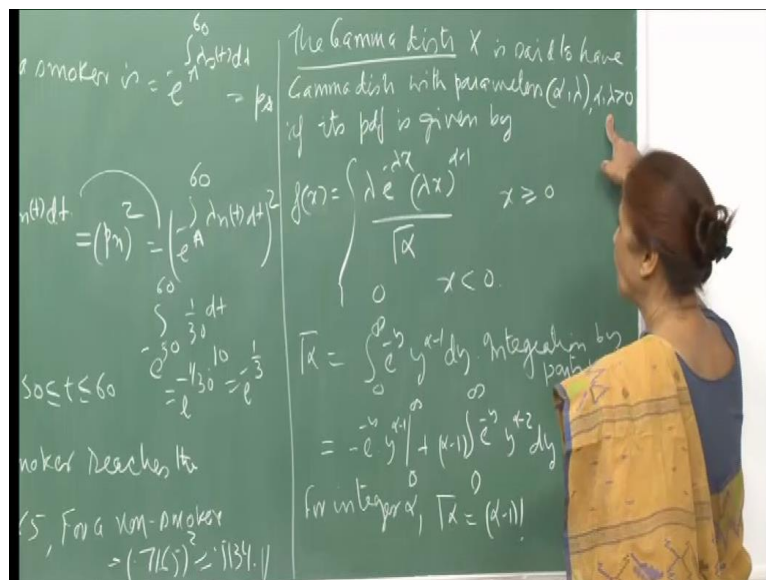 a smoker is = e^{-∫_A^{60} λs(t)dt} = ps
n(t)dt. = (pn)^2 = (e^{-∫_A^{60} λn(t)dt})^2
e^{-∫_{50}^{60} 1/30 dt}
50 ≤ t ≤ 60 = e^{-1/30 · 10} = e^{-1/3}
smoker reaches the
5, For a non-smoker
= (.7165)^2 = .5134.
The Gamma distn X is said to have
Gamma distn with parameters (α, λ), α, λ > 0
if its pdf is given by
f(x) = { λ e^{-λx} (λx)^{α-1} / Γα x ≥ 0
0 x < 0.
Γα = ∫_0^∞ e^{-y} y^{α-1} dy. Integration by
parts
= -e^{-y} y^{α-1} |_0^∞ + (α-1) ∫_0^∞ e^{-y} y^{α-2} dy
For integer α, Γα = (α-1)!